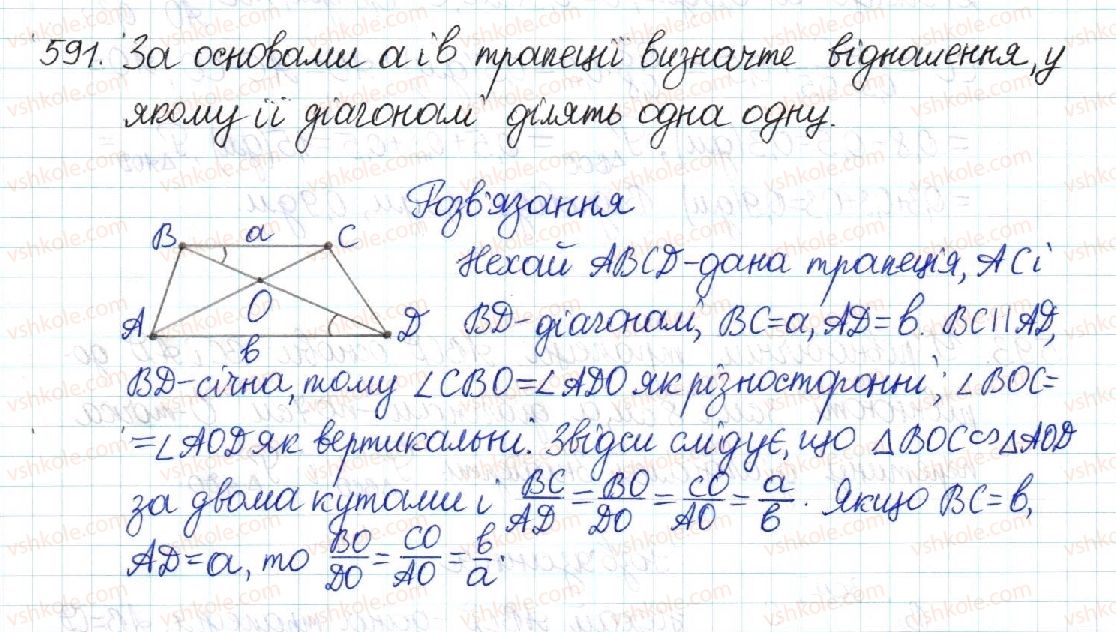 591. За основами a і в трапеції визначте відношення, у
якому її діагоналі ділять одна одну.
Розв'язання
B a C
Нехай ABCD-дана трапеція, AC і
O
A D
BD-діагоналі, BC=a, AD=в. BC||AD,
в
BD-січна, тому ∠CBO=∠ADO як різносторонні; ∠BOC=
=∠AOD як вертикальні. Звідси слідує, що △BOC∽△AOD
за двома кутами і BC/AD = BO/DO = CO/AO = a/в. Якщо BC=в,
AD=a, то BO/DO = CO/AO = в/a.